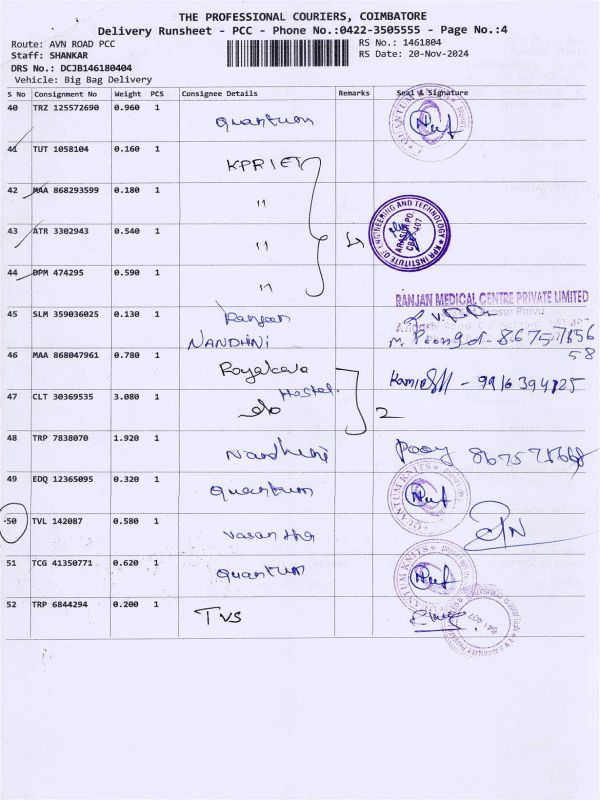 THE PROFESSIONAL COURIERS, COIMBATORE
Delivery Runsheet - PCC - Phone No.:0422-3505555 - Page No.:4
Route: AVN ROAD PCC
RS No.: 1461804
Staff: SHANKAR
RS Date: 20-Nov-2024
DRS No.: DCJB146180404
Vehicle: Big Bag Delivery
S No Consignment No Weight PCS Consignee Details Remarks Seal & Signature
40 TRZ 125572690 0.960 1 Quantum
QUANTUM KNITS
41 TUT 1058104 0.160 1 KPRIET
42 MAA 868293599 0.180 1 "
KPR INSTITUTE OF ENGINEERING AND TECHNOLOGY
ARASUR PO.
CBE-407
43 ATR 3302943 0.540 1 "
44 DPM 474295 0.590 1 "
RANJAN MEDICAL CENTRE PRIVATE LIMITED
45 SLM 359036025 0.130 1 Ranjan
NANDHINI
46 MAA 868047961 0.780 1
Hostel
- 9916394125
47 CLT 30369535 3.080 1 2
48 TRP 7838070 1.920 1 Nandhini
49 EDQ 12365095 0.320 1 Quantum
QUANTUM KNITS
50 TVL 142087 0.580 1 Vasantha
51 TCG 41350771 0.620 1 Quantum
QUANTUM KNITS
52 TRP 6844294 0.200 1 TVS
641 407